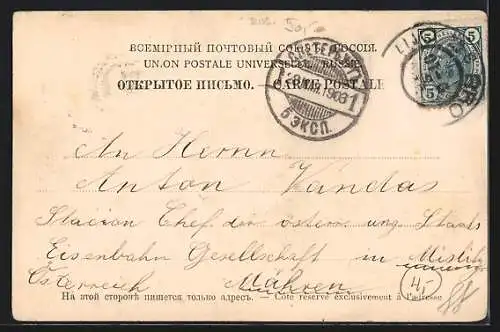 50,-
ВСЕМІРНЫЙ ПОЧТОВЫЙ СОЮЗЪ. РОССІЯ.
UNION POSTALE UNIVERSELLE. RUSSIE.
ОТКРЫТОЕ ПИСЬМО. — CARTE POSTALE
С.ПЕТЕРБУРГЪ
1903
1
5 ЭКСП.
5 5
5
An Herrn
Anton Vandas
Stacion Chef der österr ung. Staats
Eisenbahn Gesellschaft in Mislitz
Österreich Mähren
45
На этой сторонѣ пишется только адресъ. — Côté réservé exclusivement à l'adresse